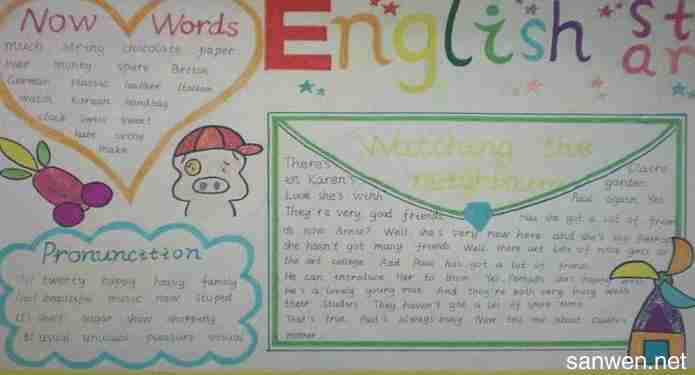 Now Words
much string chocolate paper
money spare British
German plastic leather Italian
watch Korean handbag
clock Swiss sweet
make
English star
Watching the neighbours
There's Claire
in Karen's garden.
Look she's with Paul again. Yes
They're very good friends. Has she got a lot of friends
Well, she's very new here and she's
she hasn't got many friends. Well, there are lots of nice girls at
the art college. And Paul has got a lot of friends.
He can introduce her to them. Yes, perhaps
he's a lovely young man. And they're both very busy with
their studies. They haven't got a lot of time.
That's true. Paul's always busy. Now tell me about Claire's
mother.
Pronuncition
twenty happy heavy family
beautiful music new stupid
short sugar show shopping
usual unusual pleasure casual
sanwen.net